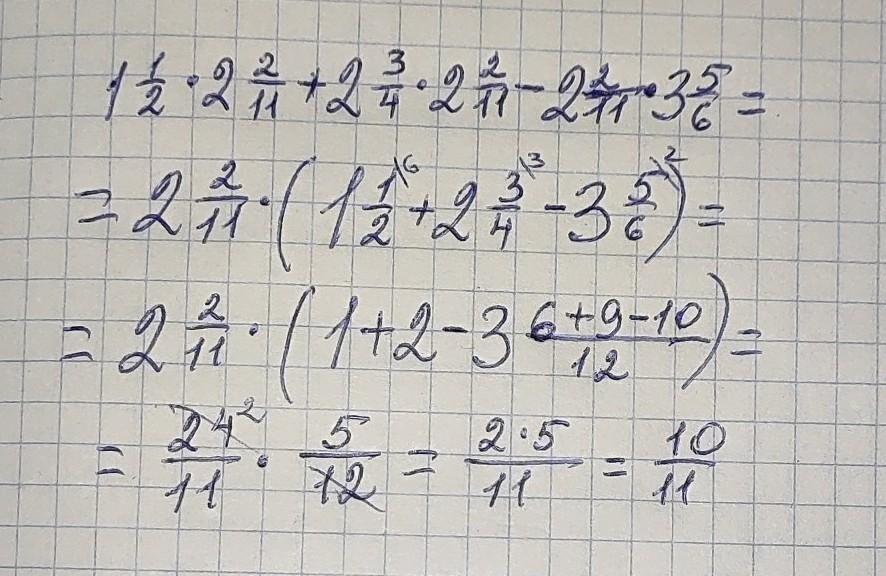 1 1/2 · 2 2/11 + 2 3/4 · 2 2/11 - 2 2/11 · 3 5/6 =
= 2 2/11 · ( 1 1/2 \6 + 2 3/4 \3 - 3 5/6 \2 ) =
= 2 2/11 · ( 1 + 2 - 3 6+9-10/12 ) =
= 24 2/11 · 5/12 = 2·5/11 = 10/11